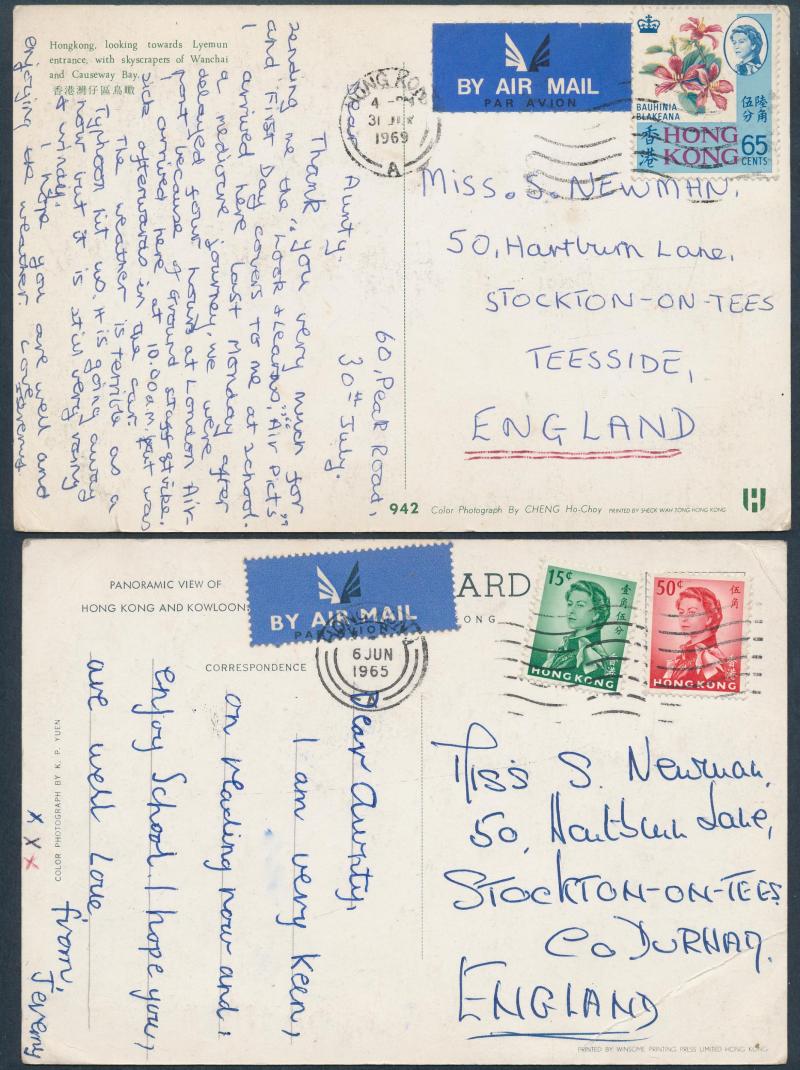 Hongkong, looking towards Lyemun
entrance, with skyscrapers of Wanchai
and Causeway Bay.
香港灣仔區鳥瞰
BY AIR MAIL
PAR AVION
HONG KONG
4 - PM
31 JUL
1969
A
BAUHINIA
BLAKEANA
伍分 陸角
香港
HONG KONG
65 CENTS
60, Peak Road,
30th July.
Dear Aunty.
Thank you very much for
sending me the "Look & Learns," Air Pict's
and First Day covers to me at school.
I arrived here last Monday after
a mediocre journey, we were
delayed four hours at London Air-
port because of Ground staff strike.
I arrived here at 10.00 a.m. but was
sick afterwards in the car.
The weather is terrible as a
Typhoon hit us. It is going away
now but it is still very rainy
& windy.
I hope you are well and
enjoying the weather. Love
Jeremy
MISS. S. NEWMAN,
50, Hartburn Lane,
STOCKTON-ON-TEES
TEESSIDE,
ENGLAND
942 Color Photograph By CHENG Ho-Choy PRINTED BY SHECK WAH TONG HONG KONG
PANORAMIC VIEW OF
HONG KONG AND KOWLOON
BY AIR MAIL
PAR AVION
ARD
ONG
6 JUN
1965
15¢
壹角伍分
香港
HONG KONG
50¢
伍角
香港
HONG KONG
CORRESPONDENCE
Dear Aunty,
I am very Keen,
on reading now and,
enjoy School. I hope you,
are well Love
from,
Jeremy
x x x
COLOR PHOTOGRAPH BY K. P. YUEN
Miss S. Newman,
50, Hartburn Lane,
STOCKTON-ON-TEES
Co DURHAM.
ENGLAND
PRINTED BY WINSOME PRINTING PRESS LIMITED HONG KONG